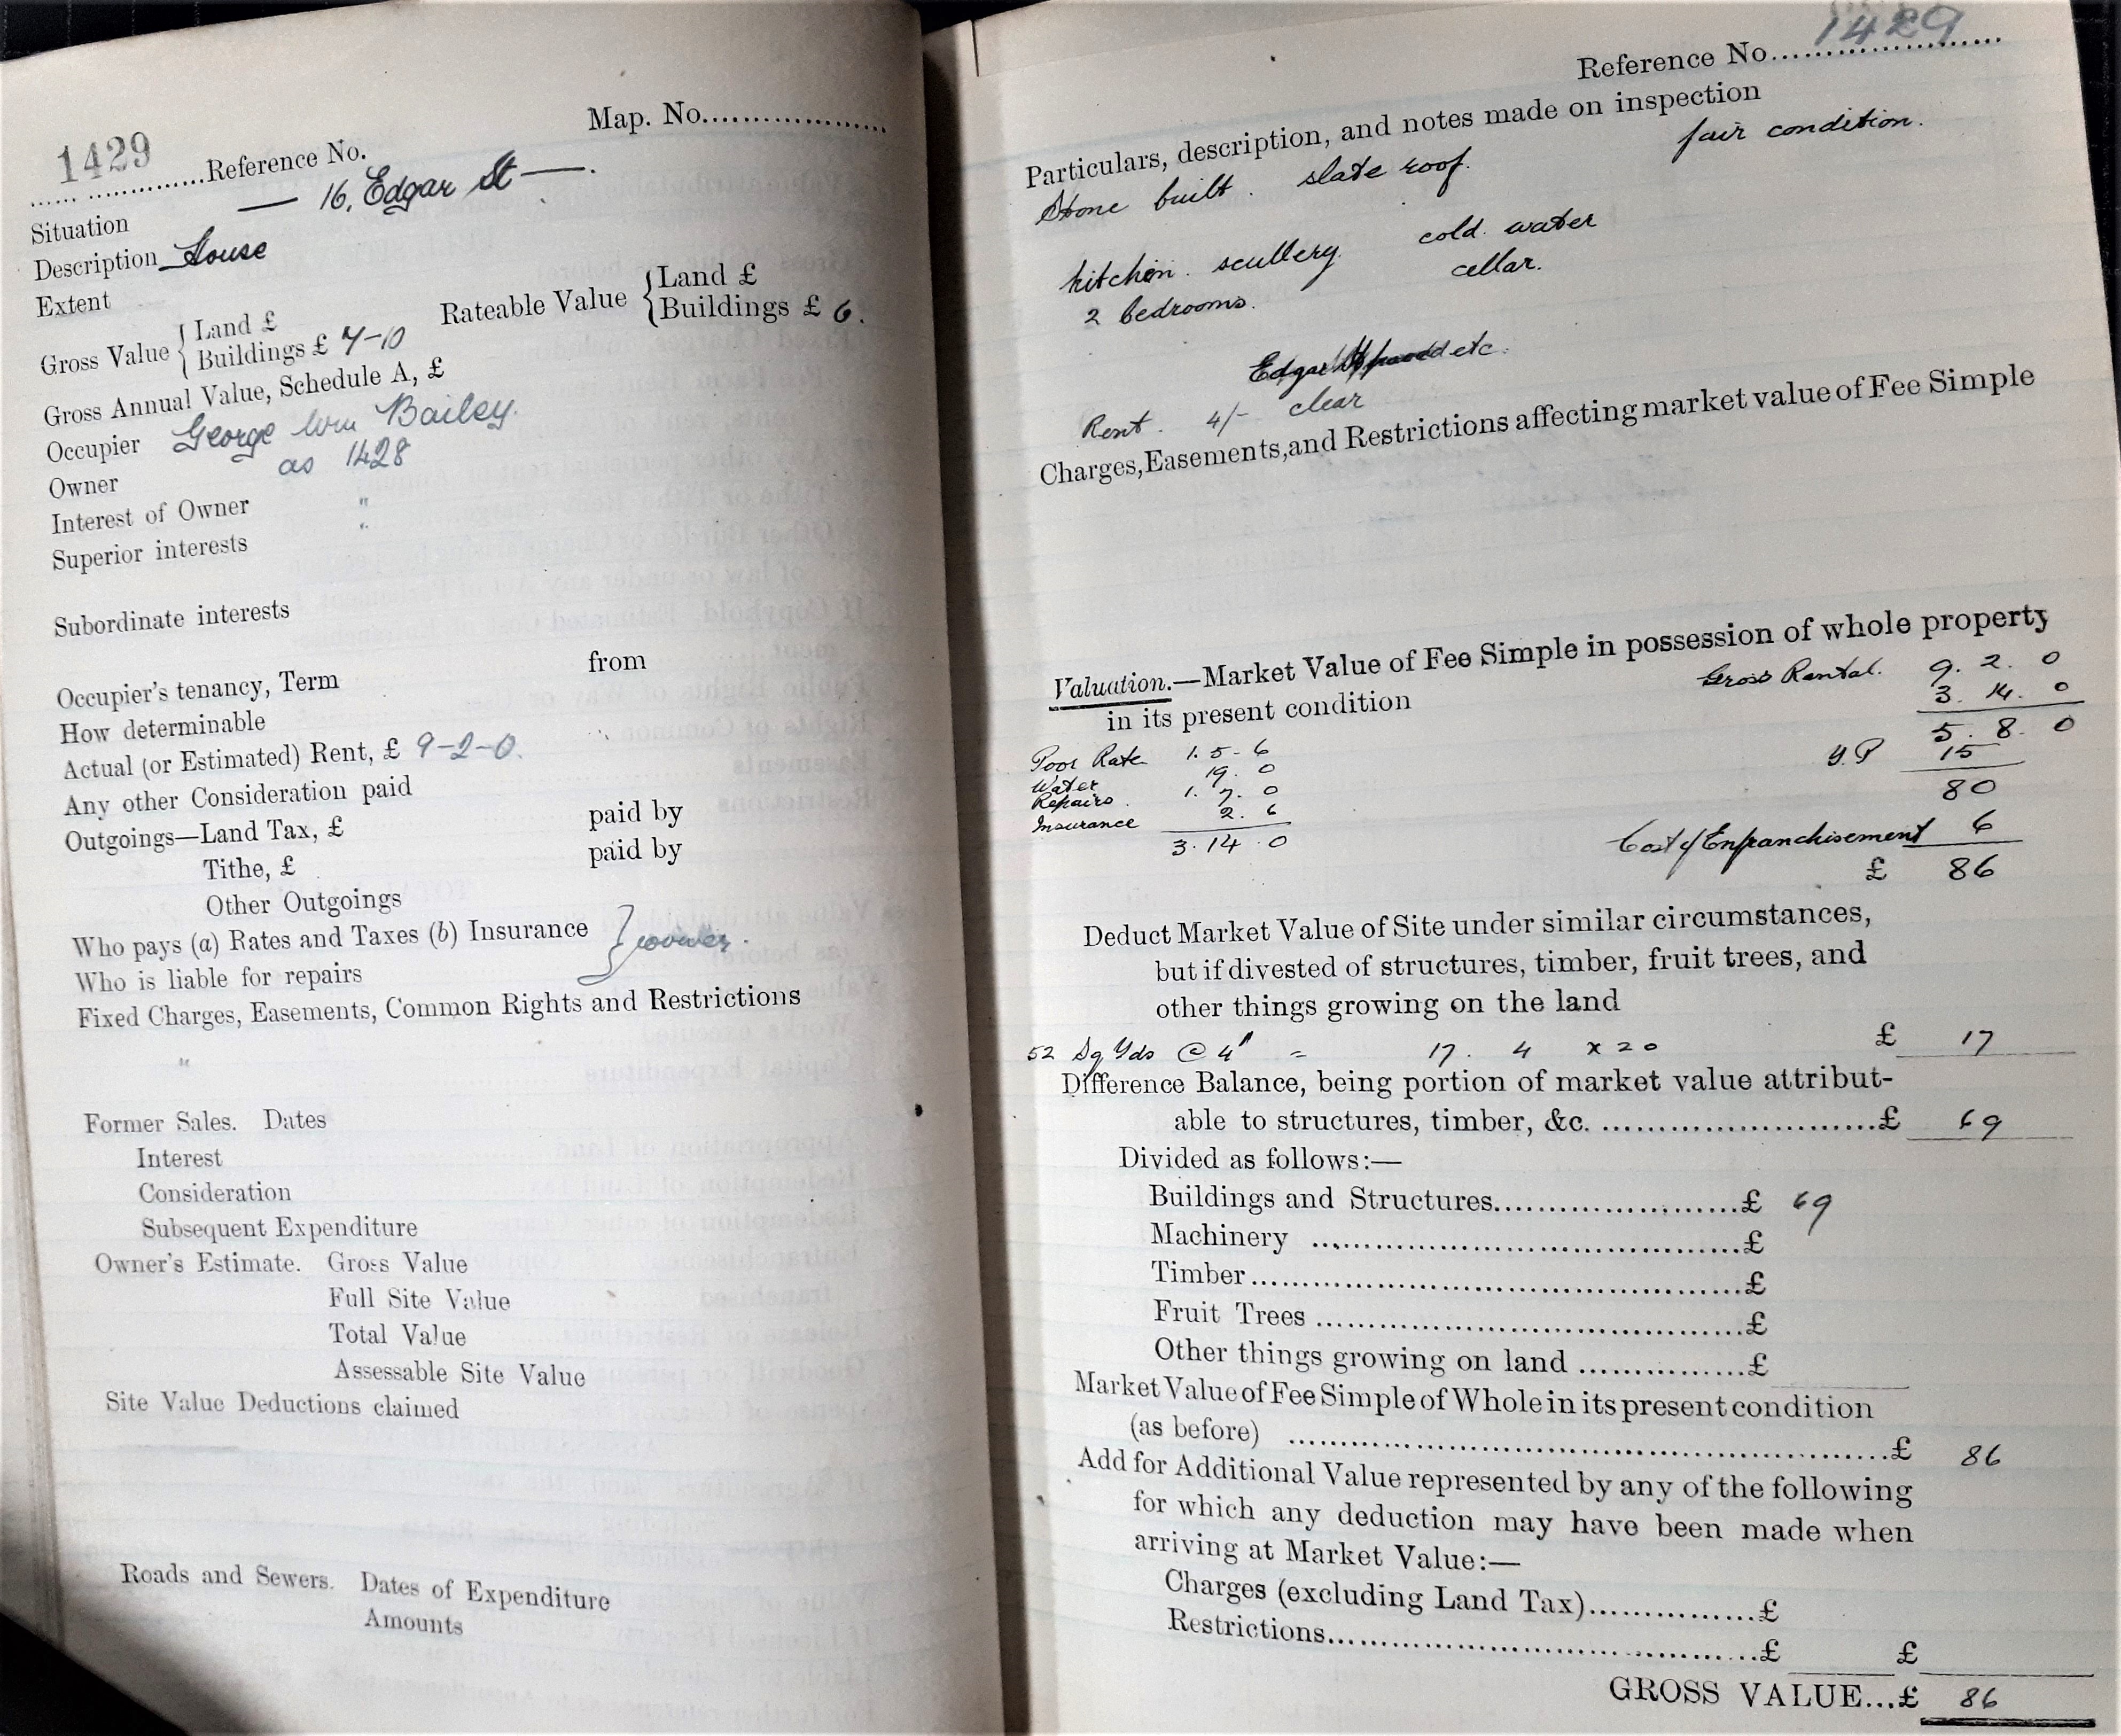 Map. No....................
1429
....................Reference No.
Situation — 16, Edgar St —.
Description House
Extent
Gross Value { Land £
Buildings £ 7-10
Rateable Value { Land £
Buildings £ 6.
Gross Annual Value, Schedule A, £
Occupier George Wm Bailey.
Owner as 1428
Interest of Owner "
Superior interests "
Subordinate interests
Occupier's tenancy, Term from
How determinable
Actual (or Estimated) Rent, £ 9-2-0.
Any other Consideration paid
Outgoings—Land Tax, £ paid by
Tithe, £ paid by
Other Outgoings
Who pays (a) Rates and Taxes (b) Insurance } owner.
Who is liable for repairs
Fixed Charges, Easements, Common Rights and Restrictions
"
Former Sales. Dates
Interest
Consideration
Subsequent Expenditure
Owner's Estimate. Gross Value
Full Site Value
Total Value
Assessable Site Value
Site Value Deductions claimed
Roads and Sewers. Dates of Expenditure
Amounts
Reference No. 1429
Particulars, description, and notes made on inspection
Stone built. slate roof. fair condition.
kitchen. scullery. cold. water
2 bedrooms. cellar.
Edgar etc.
Rent. 4/- clear
Charges, Easements, and Restrictions affecting market value of Fee Simple
Valuation.—Market Value of Fee Simple in possession of whole property
in its present condition
Gross Rental. 9. 2. 0
3. 14. 0
5. 8. 0
Y.P 15
80
Cost of Enfranchisement 6
£ 86
Poor Rate 1. 5 - 6
Water 19. 0
Repairs. 1. 7. 0
Insurance 2. 6
3. 14. 0
Deduct Market Value of Site under similar circumstances,
but if divested of structures, timber, fruit trees, and
other things growing on the land
52 Sq Yds @ 4" = 17. 4 x 20 £ 17
Difference Balance, being portion of market value attribut-
able to structures, timber, &c. ..........................£ 69
Divided as follows:—
Buildings and Structures........................£ 69
Machinery ........................................£
Timber..............................................£
Fruit Trees .......................................£
Other things growing on land ................£
Market Value of Fee Simple of Whole in its present condition
(as before) ..........................................................£ 86
Add for Additional Value represented by any of the following
for which any deduction may have been made when
arriving at Market Value:—
Charges (excluding Land Tax)................£
Restrictions..........................................£ £
GROSS VALUE...£ 86